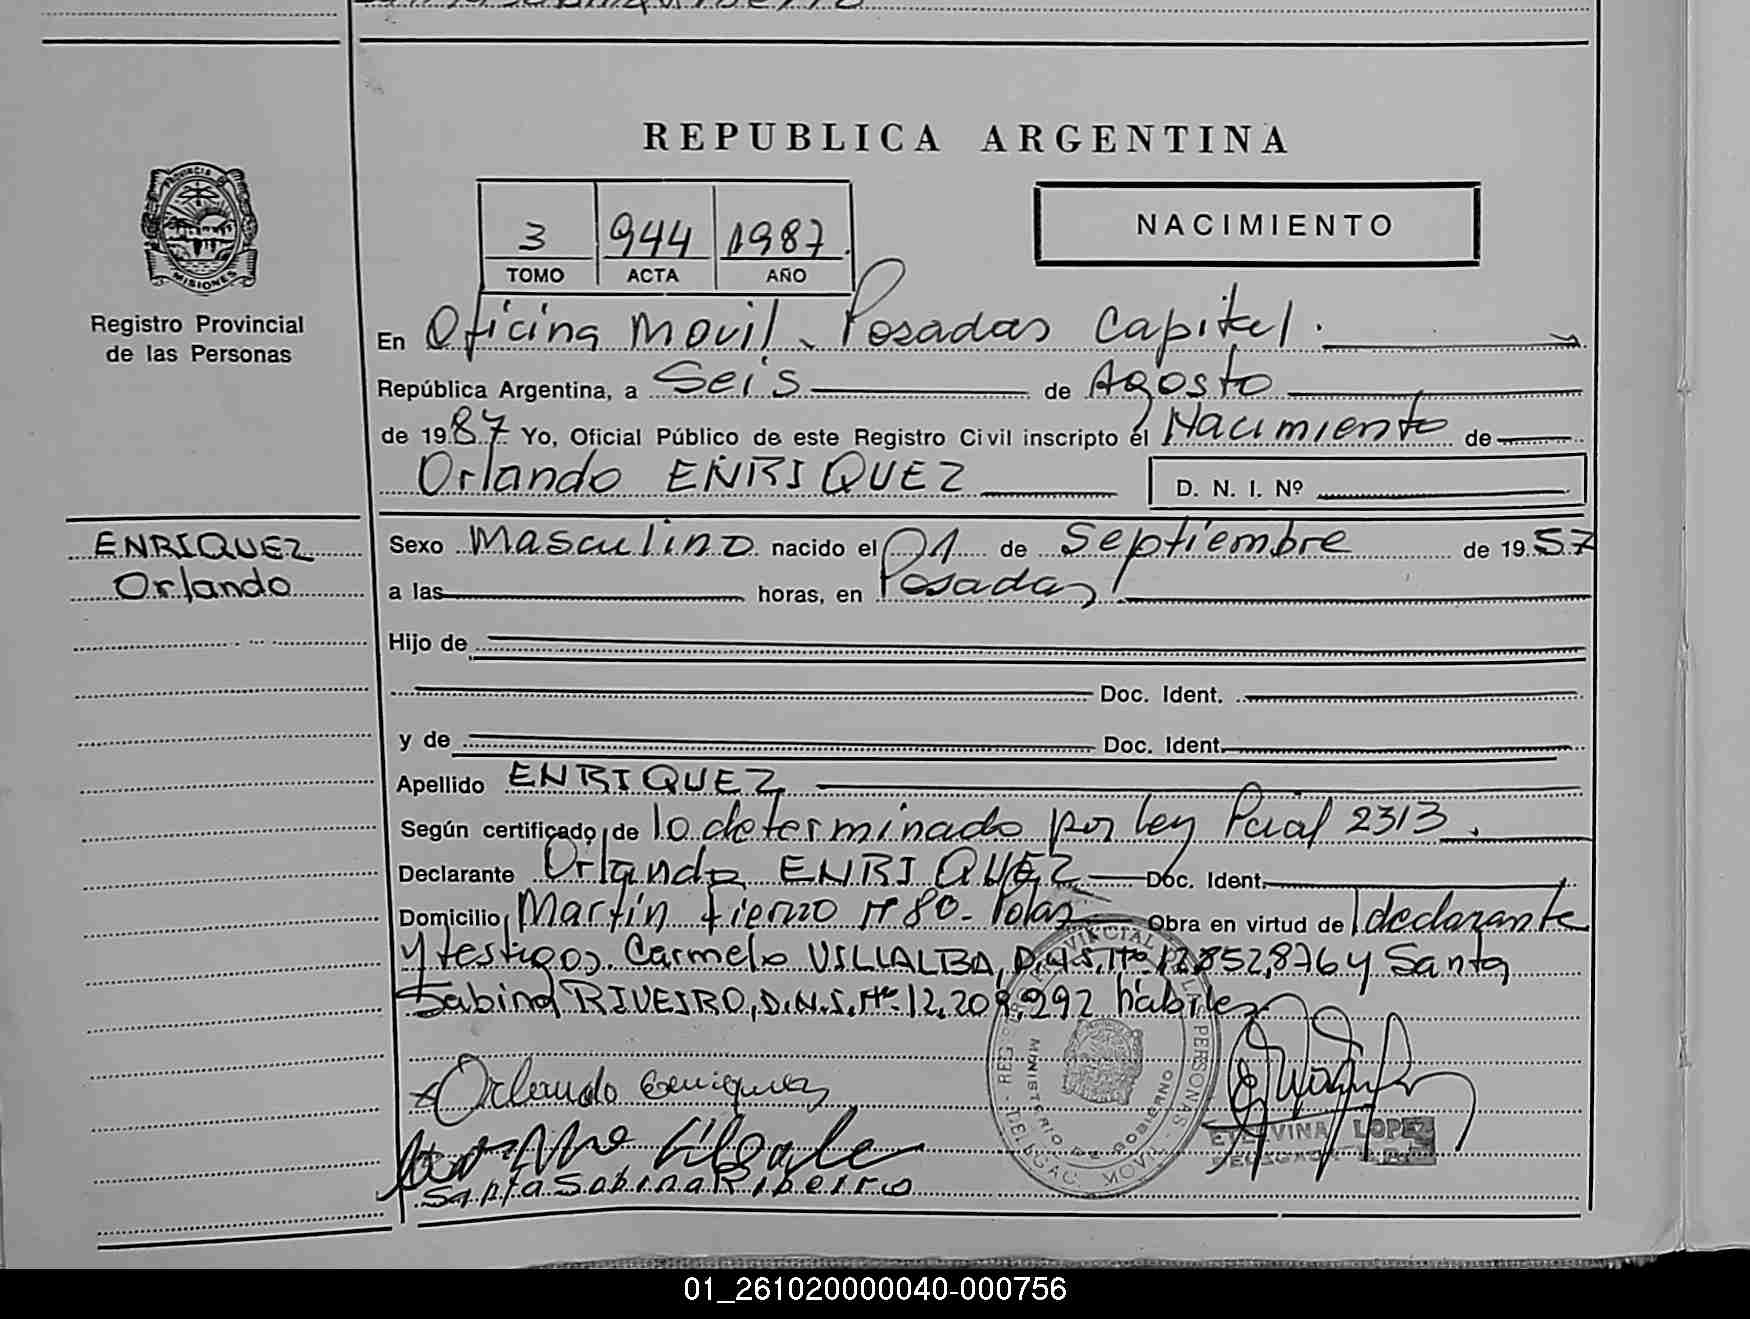 REPUBLICA ARGENTINA
PROVINCIA DE
MISIONES
Registro Provincial
de las Personas
3 944 1987
TOMO ACTA AÑO
NACIMIENTO
En Oficina Movil - Posadas Capital.
República Argentina, a Seis de Agosto
de 1987 Yo, Oficial Público de este Registro Civil inscripto el Nacimiento de
Orlando ENRIQUEZ
D. N. I. Nº
ENRIQUEZ
Orlando
Sexo Masculino nacido el 01 de Septiembre de 1957
a las horas, en Posadas
Hijo de
Doc. Ident.
y de Doc. Ident.
Apellido ENRIQUEZ
Según certificado de lo determinado por ley Pcial 2313.
Declarante Orlando ENRIQUEZ Doc. Ident.
Domicilio Martín fierro Nº 80- Obra en virtud de declarante
y testigos. Carmelo VILLALBA, D.N.I. Nº 12,852,876 y Santa
Sabina RIVEIRO, D.N.I. Nº 12.209,292 hábiles
Orlando Enriquez
Santa Sabina Ribeiro
MINISTERIO DE GOBIERNO
PERSONAS
LOPEZ
01_261020000040-000756